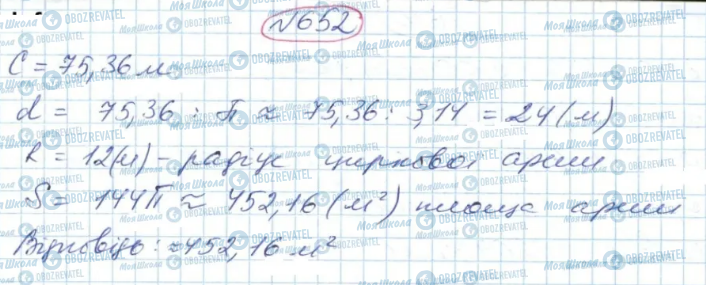 №652
C = 75,36 м
d = 75,36 : П ≈ 75,36 : 3,14 = 24 (м)
R = 12(м) - радіус циркової арени
S = 144П ≈ 452,16 (м²) площа арени
Відповідь: ≈452,16 м²